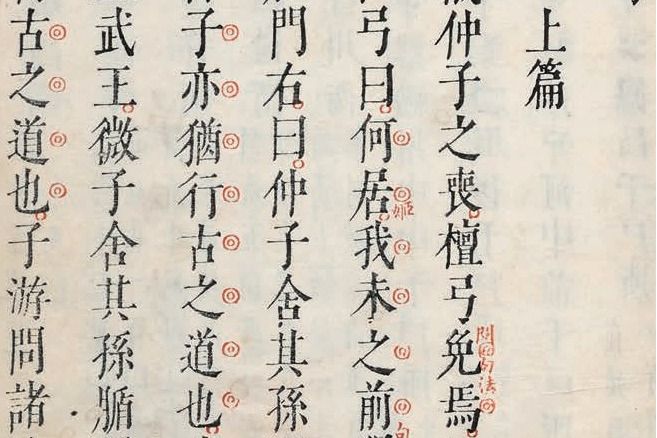 上篇
仲子之喪檀弓免焉
句法
弓曰何居我未之前
姬
門右曰仲子舍其孫
子亦猶行古之道也
武王微子舍其孫腯
古之道也子游問諸